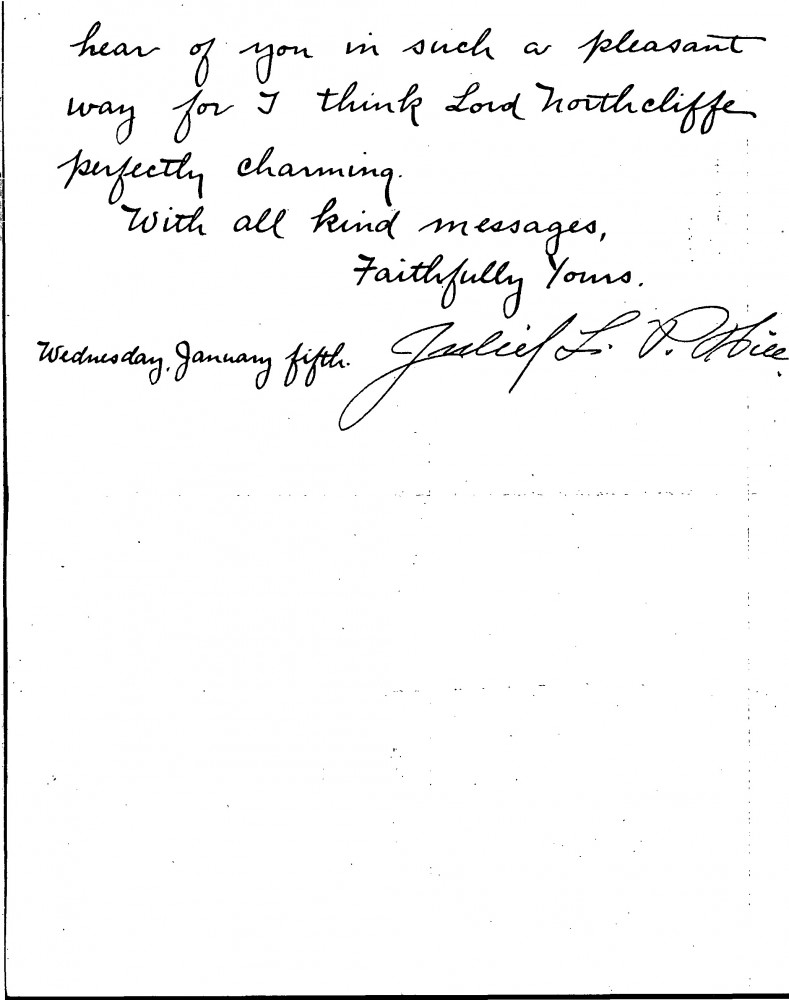 hear of you in such a pleasant
way for I think Lord Northcliffe
perfectly charming.
With all kind messages,
Faithfully Yours.
Wednesday, January fifth. L. P. Hill.